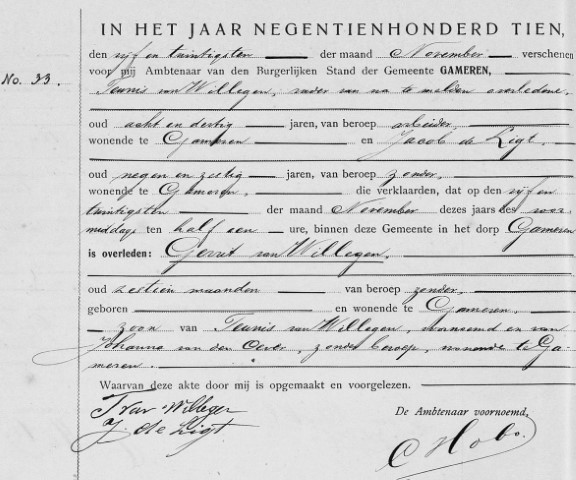 IN HET JAAR NEGENTIENHONDERD TIEN,
den vijf en twintigsten der maand November verschenen
No. 33. voor mij Ambtenaar van den Burgerlijken Stand der Gemeente GAMEREN,
Teunis van Willegen, vader van na te melden overledene,
oud acht en dertig jaren, van beroep arbeider,
wonende te Gameren en Jacob de Ligt,
oud negen en zestig jaren, van beroep zonder,
wonende te Gameren, die verklaarden, dat op den vijf en
twintigsten der maand November dezes jaars des voor
middags ten half een ure, binnen deze Gemeente in het dorp Gameren
is overleden: Gerrit van Willegen,
oud zestien maanden van beroep zonder,
geboren en wonende te Gameren,
zoon van Teunis van Willegen, voornoemd en van
Johanna van den Oever, zonder beroep, wonende te Ga
meren.
Waarvan deze akte door mij is opgemaakt en voorgelezen.
T van Willegen
J. de Ligt.
De Ambtenaar voornoemd,
C Hobo.